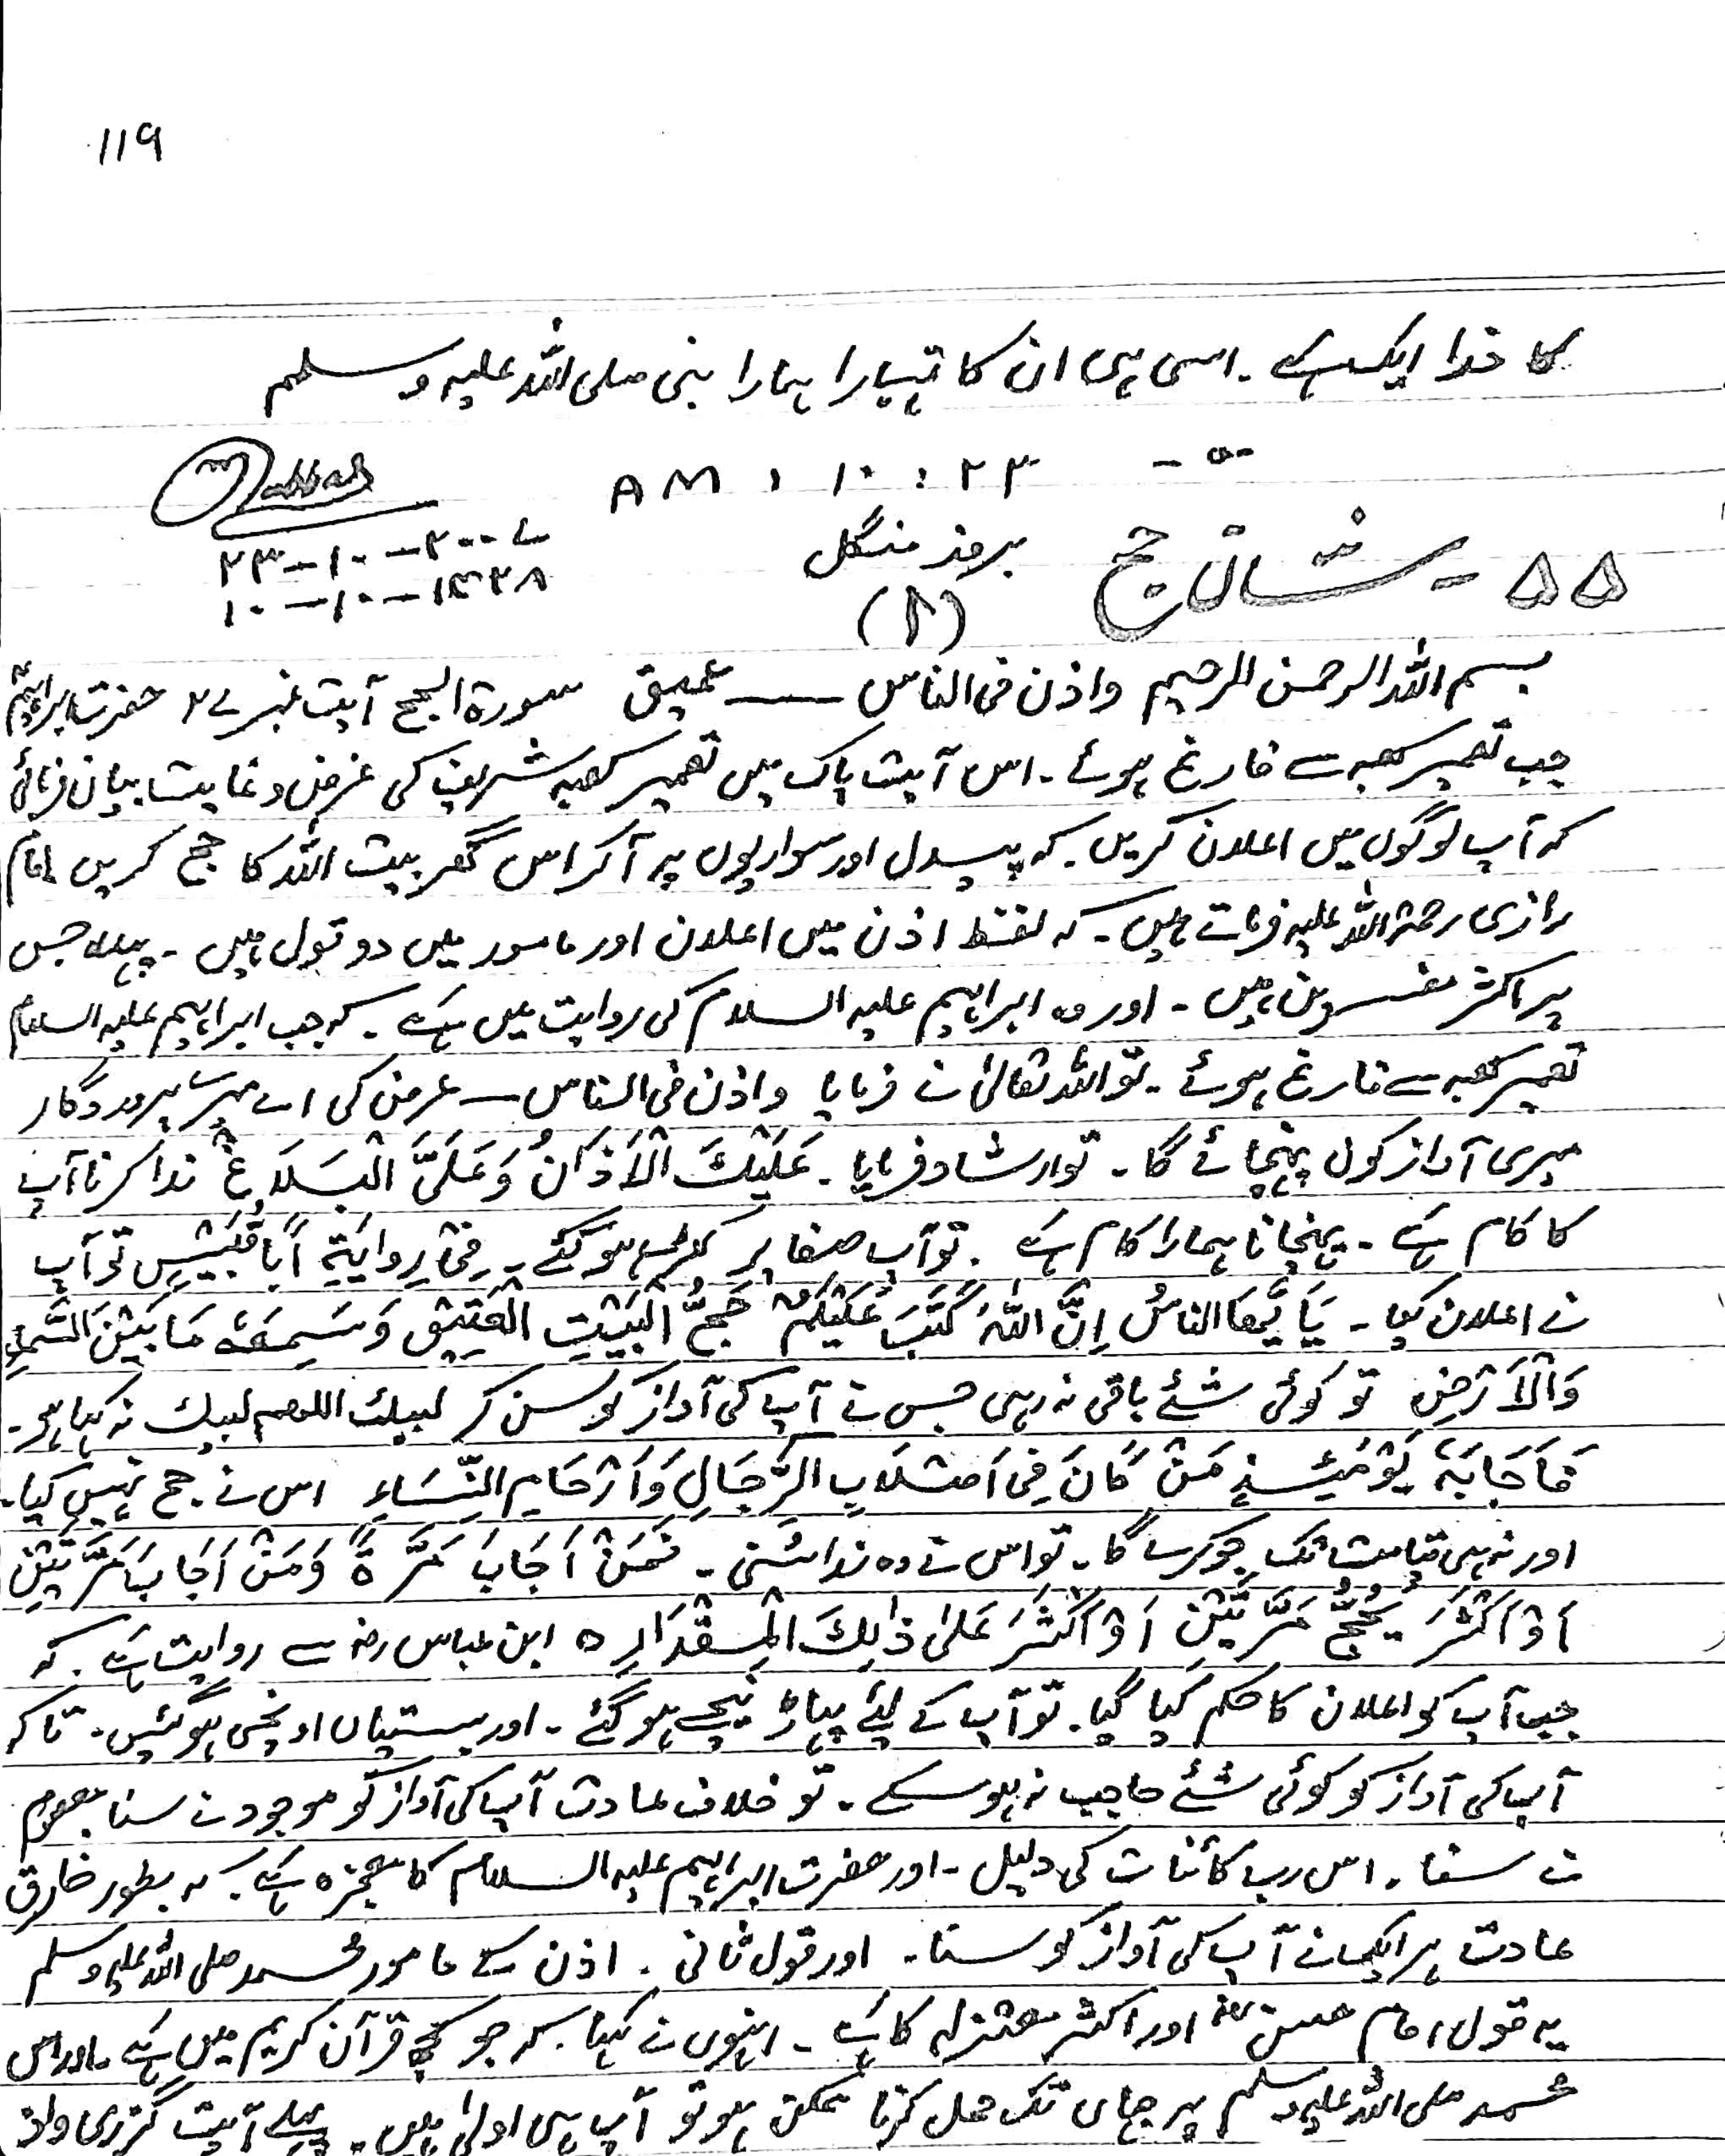 119
کا خدا ایک ہے۔ اسی ہی ان کا تہارا ہمارا نبی صلی اللہ علیہ وسلم
AM : ۱۰ : ۲۳
۲۳-۱۰-۲۰۰۷
بروز منگل
۵۵۔ شان حج
۱۰-۱۰-۱۴۲۸
(۲)
بسم اللہ الرحمن الرحیم واذن فی الناس —— عمیق سورۃ الحج آیت نمبر ۲۷ حضرت ابراہیمؑ
جب تعمیر کعبہ سے فارغ ہوئے۔ اس آیت پاک میں تعمیر کعبہ شریف کی غرض و غایت بیان فرمائی
کہ آپ لوگوں میں اعلان کریں۔ کہ پیدل اور سواریوں پہ آکر اس گھر بیت اللہ کا حج کریں امام
رازی رحمۃ اللہ علیہ فرماتے ہیں۔ کہ لفظ اذن میں اعلان اور مامور میں دو قول ہیں۔ پہلا جس
پر اکثر مفسرین ہیں۔ اور وہ ابراہیم علیہ السلام کی روایت میں ہے۔ کہ جب ابراہیم علیہ السلام
تعمیر کعبہ سے فارغ ہوئے۔ تو اللہ تعالیٰ نے فرمایا واذن فی الناس — عرض کی اے میرے پروردگار
میری آواز کون پہنچائے گا۔ تو ارشاد فرمایا۔ عَلَیْکَ الْاَذَانُ وَعَلَیَّ الْبَلَاغُ ندا کرنا آپ
کا کام ہے۔ پہنچانا ہمارا کام ہے۔ تو آپ صفا پر کھڑے ہو گئے۔ فِیْ رِوَایَۃٍ اَبَا قُبَیْسٍ تو آپ
نے اعلان کیا۔ یَا یُّھَا النَّاسُ اِنَّ اللّٰہَ کَتَبَ عَلَیْکُمْ حَجُّ الْبَیْتِ الْعَتِیْقِ وَسَمِعَہٗ مَا بَیْنَ السَّمَاءِ
وَالْاَرْضِ تو کوئی شئے باقی نہ رہی جس نے آپ کی آواز کو سن کر لبیک اللھم لبیک نہ کہا ہو۔
فَاَجَابَہٗ یَوْمَئِذٍ مَنْ کَانَ فِی اَصْلَابِ الرِّجَالِ وَاَرْحَامِ النِّسَاءِ اس نے حج نہیں کیا۔
اور نہ ہی قیامت تک جو کرے گا۔ تو اس نے وہ ندا سُنی۔ فَمَنْ اَجَابَ مَرَّۃً وَمَنْ اَجَابَ مَرَّتَیْنِ
اَوْ اَکْثَرَ یَحُجُّ مَرَّتَیْنِ اَوْ اَکْثَرَ عَلٰی ذٰلِکَ الْمِقْدَارِ ہ ابن عباس رضہ سے روایت ہے۔ کہ
جب آپ کو اعلان کا حکم کیا گیا۔ تو آپ کے لئے پہاڑ نیچے ہو گئے۔ اور بستیاں اونچی ہوگئیں۔ تاکہ
آپ کی آواز کو کوئی شئے حاجب نہ ہو سکے۔ تو خلاف عادت آپ کی آواز کو موجود نے سنا معدوم
نے سنا۔ اس رب کائنات کی دلیل۔ اور حضرت ابراہیم علیہ السلام کا معجزہ ہے۔ کہ بطور خارق
عادت ہر ایک نے آپ کی آواز کو سنا۔ اور قول ثانی۔ اذن کے مامور محمد صلی اللہ علیہ وسلم
یہ قول امام حسن رضہ اور اکثر معتزلہ کا ہے۔ انہوں نے کہا۔ کہ جو کچھ قرآن کریم میں ہے۔ اور اس
محمد صلی اللہ علیہ وسلم پر جہاں تک حمل کرنا ممکن ہو تو آپ ہی اولیٰ ہیں۔ پہلے آیت گزری واذ